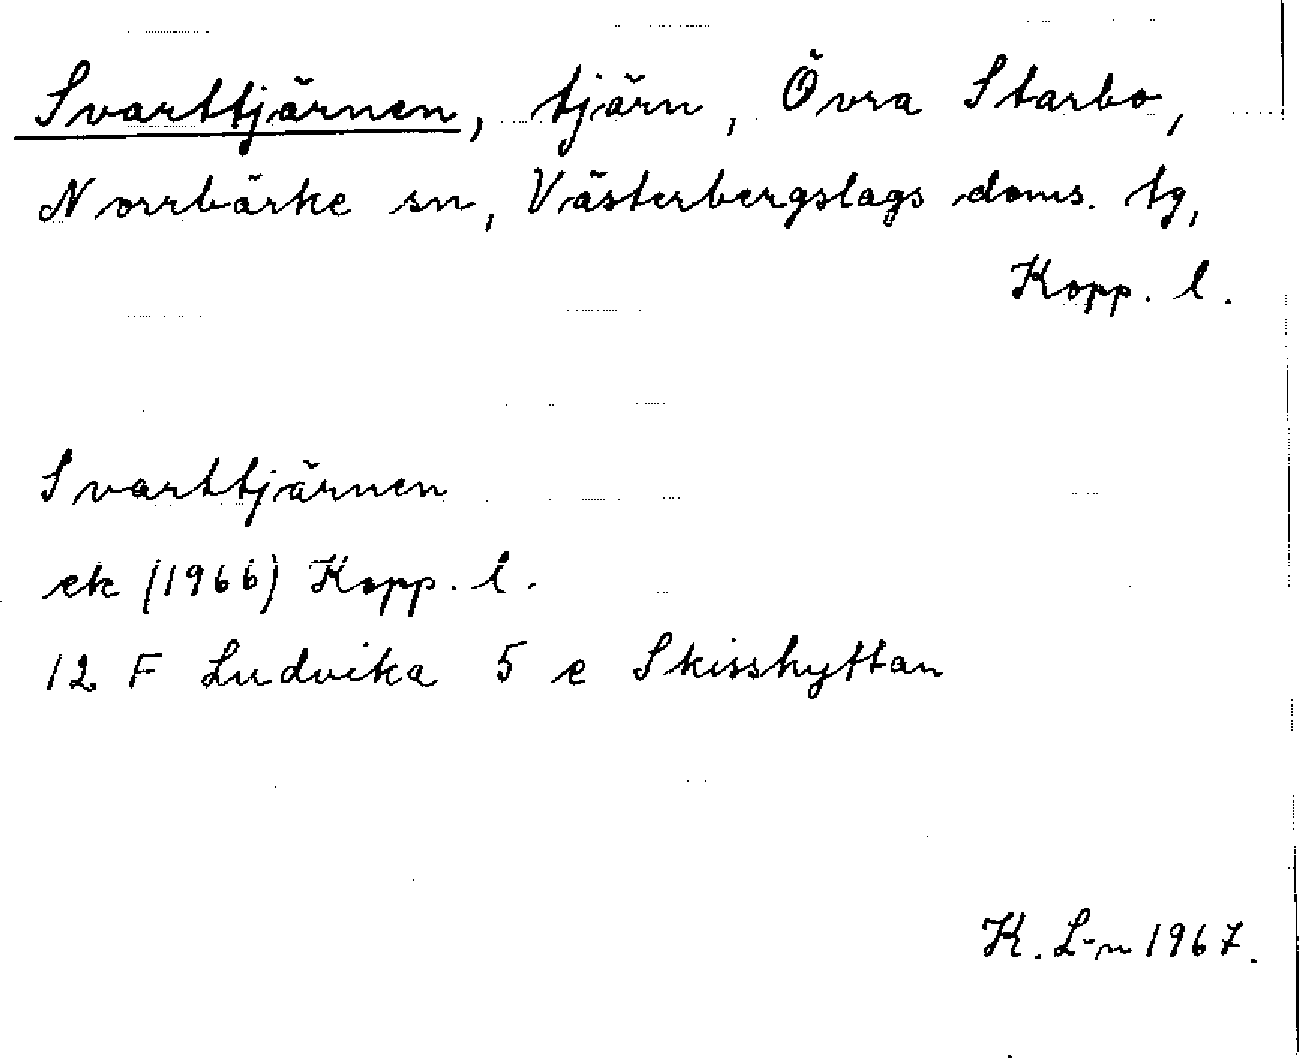 Svarttjärnen, tjärn, Övra Starbo,
Norrbärke sn, Västerbergslags doms. tg,
Kopp. l.
Svarttjärnen
ek (1966) Kopp. l.
12 F Ludvika 5 e Skisshyttan
K. L-n 1967.